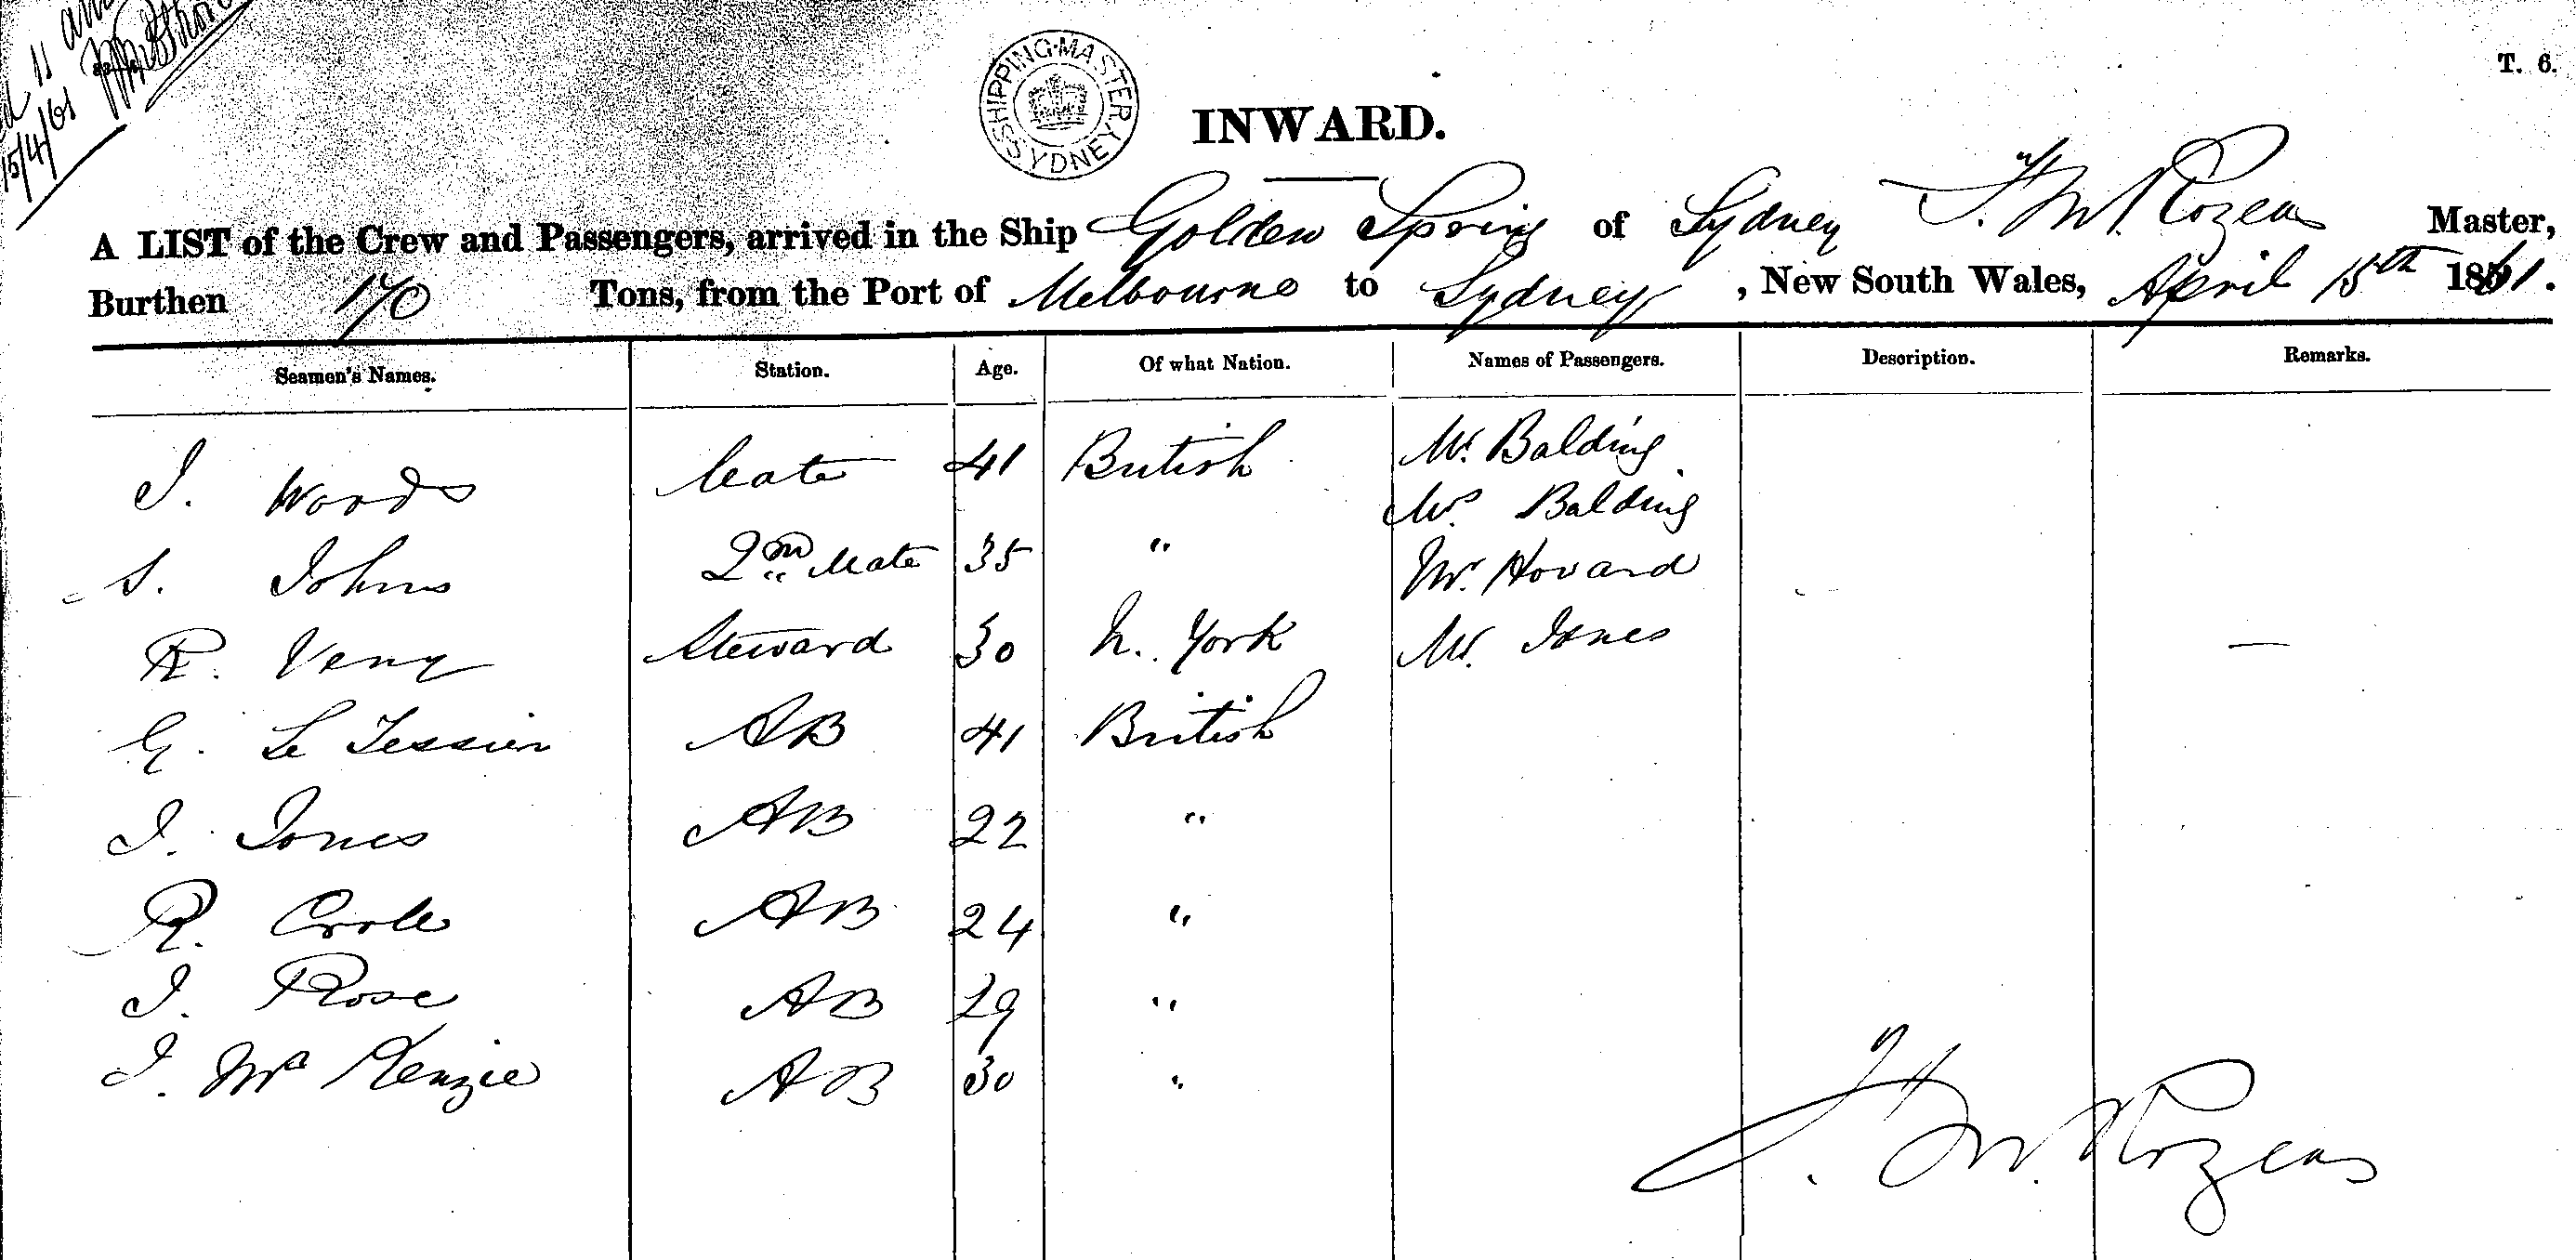 15/4/61
SHIPPING MASTER SYDNEY
T. 6.
INWARD.
A LIST of the Crew and Passengers, arrived in the Ship Golden Spring of Sydney T. M. Rozeas Master,
Burthen 170 Tons, from the Port of Melbourne to Sydney, New South Wales, April 15th 1861.
Seamen's Names. Station. Age. Of what Nation. Names of Passengers. Description. Remarks.
J. Woods Mate 41 British Mr. Balding
Mrs Balding
S. Johns 2nd Mate 35 " Mr. Hovard
R. Veny Steward 30 N. York Mr. Jones
G. Le Tessier AB 41 British
J. Jones AB 22 "
R. Crole AB 24 "
J. Rose AB 29 "
J. Mc Kenzie AB 30 "
T. M. Rozeas